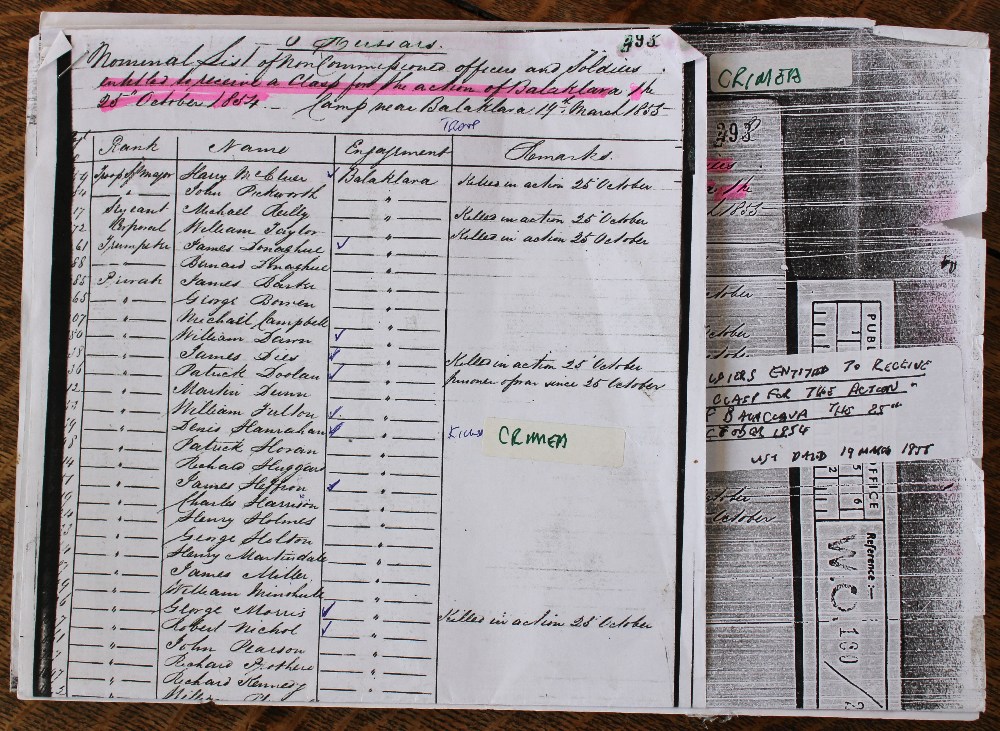 Hussars.
393
Nominal List of Non Commissioned officers and Soldiers
entitled to receive a Clasp for the action of Balaklava the
25th October 1854 — Camp near Balaklava 19th March 1855
TROOP
Rank Name Engagement Remarks.
Troop Sjt Major Harry McCluer Balaklava Killed in action 25 October
" John Pickworth "
17 Serjeant Michael Reilly " Killed in action 25 October
72 Corporal William Taylor " Killed in action 25 October
61 Trumpeter James Donaghue "
88 " Barnard Donaghue "
85 Private James Barker "
65 " George Bowen "
07 " Michael Campbell "
80 " William Dawn "
38 " James Dies " Killed in action 25 October
36 " Patrick Doolan " Prisoner of war since 25 October
12 " Martin Dunn "
" William Fulton "
" Denis Hanrahan " Killed
" Patrick Horan "
" Richard Huggans "
" James Heffron "
" Charles Harrison "
" Henry Holmes "
" George Holton "
" Henry Martindale "
" James Miller "
" William Minshull "
" George Morris " Killed in action 25 October
" Robert Nichol "
" John Pearson "
" Richard Prothero "
" Richard Kennedy "
CRIMEA
CRIMEA
393
the
1855
October
October
LDIERS ENTITLED TO RECEIVE
CLASP FOR THE ACTION "
F BALACLAVA THE 25TH
CTOBER 1854
LIST DATED 19 MARCH 1855
October
October
PUBL
OFFICE
Reference:-
W.O. 100/2